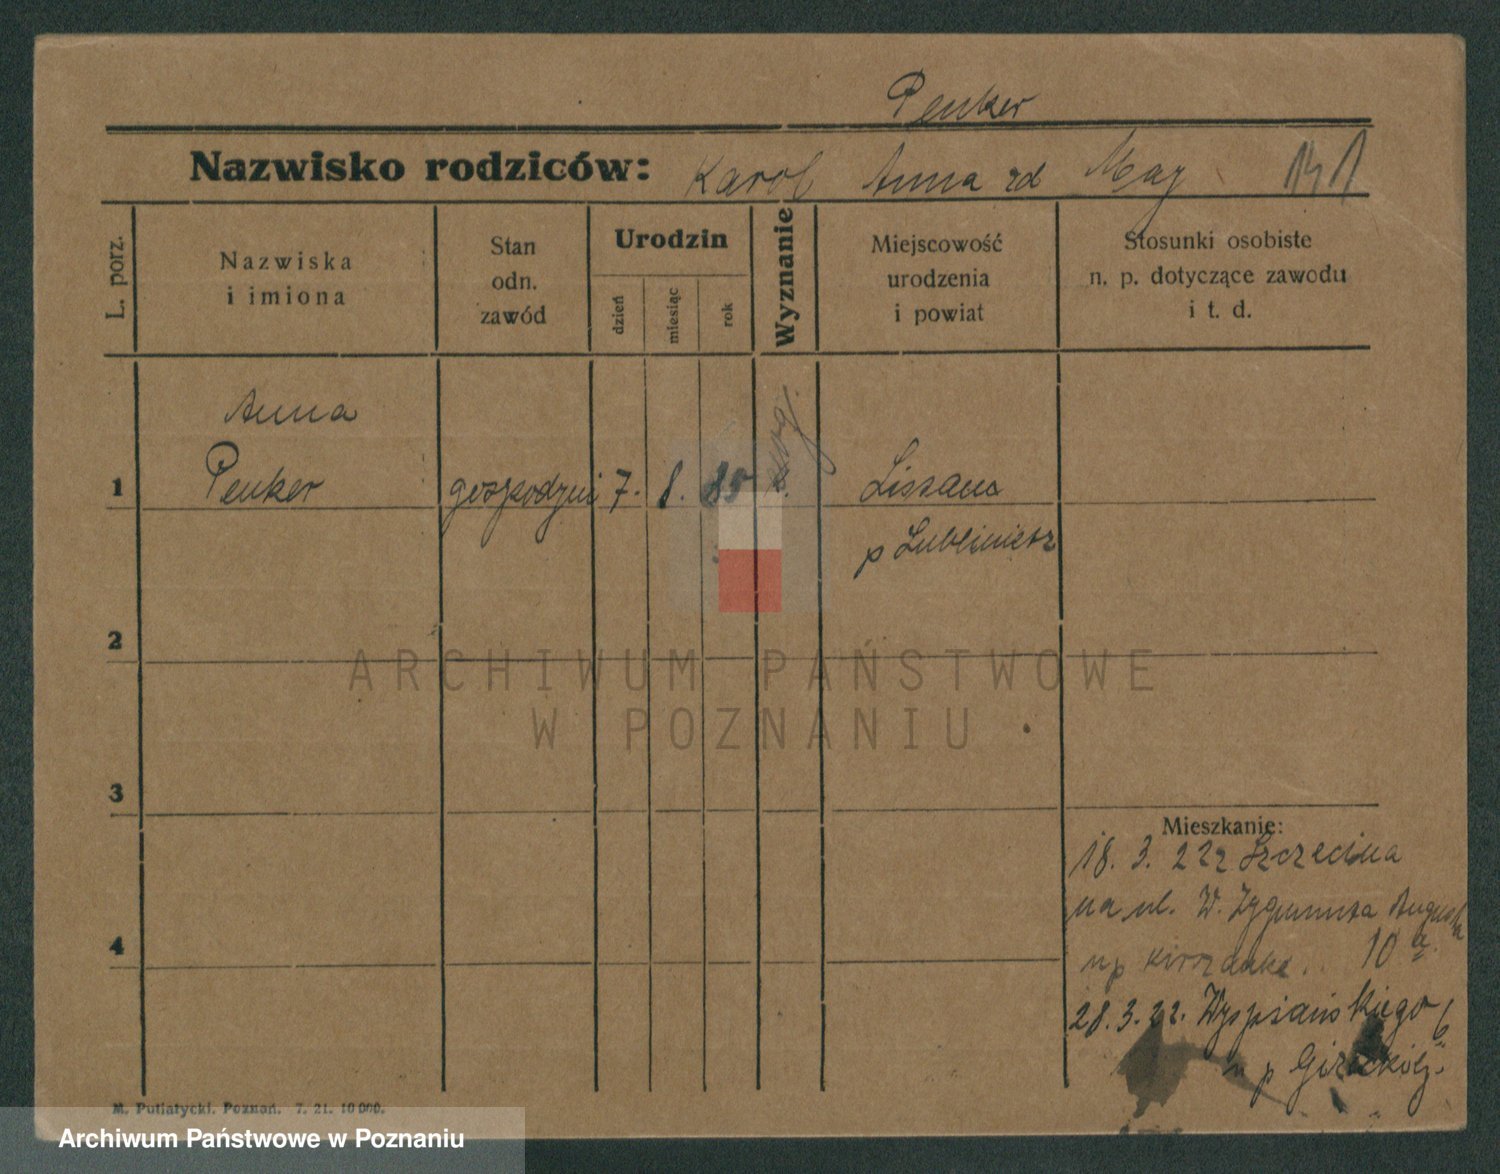 Penker
Nazwisko rodziców: Karol Anna zd May
L. porz.
Nazwiska
i imiona
Stan
odn.
zawód
Urodzin
dzień
miesiąc
rok
Wyznanie
Miejscowość
urodzenia
i powiat
Stosunki osobiste
n. p. dotyczące zawodu
i t. d.
Anna
1 Penker gospodyni 7. 8. 85 Lissana
p Lubliniesz
2
ARCHIWUM PAŃSTWOWE
W POZNANIU
3
Mieszkanie:
18. 3. 22 z Szczecina
na ul. W. Zygmunta Augusta
4
u p 10 a.
28. 3. 22. Wyspiańskiego 6
u p
M. Putiatycki. Poznań. 7. 21. 10 000.
Archiwum Państwowe w Poznaniu